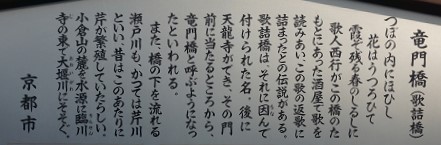 竜門橋（歌詰橋）
つぼの内にほひし
花はうつろひて
霞ぞ残る春のしるしに
歌人西行がこの橋のた
もとにあった酒屋で歌を
読みあい、この歌の返歌に
詰まったとの伝説がある。
歌詰橋は、それに因んで
付けられた名。後に
天龍寺ができ、その門
前に当たるところから、
竜門橋と呼ぶようになっ
たといわれる。
また、橋の下を流れる
瀬戸川も、かつては芹川
といい、昔はこのあたりに
芹が繁殖していたらしい。
小倉山の麓を水源に臨川
寺の東で大堰川にそそぐ。
京都市